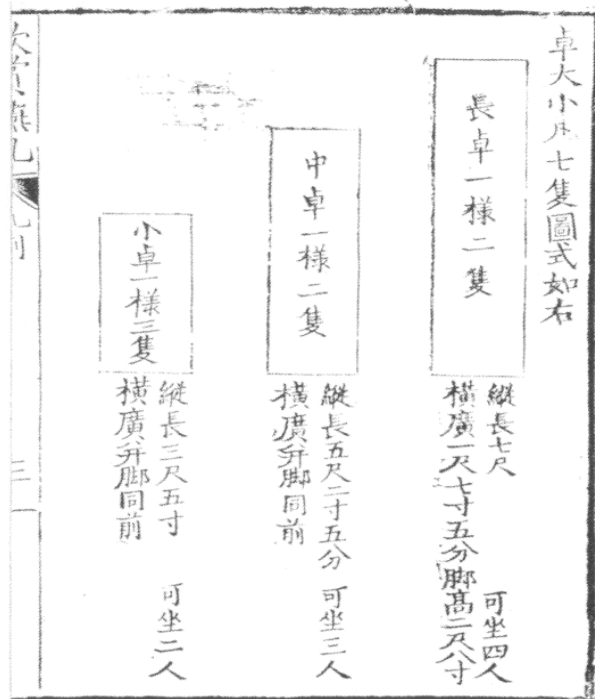 卓大小凡七隻圖式如右
長卓一様二隻
縱長七尺
可坐四人
橫廣一尺七寸五分脚髙二尺八寸
中卓一様二隻
縱長五尺二寸五分
可坐三人
橫廣并脚同前
小卓一様三隻
縱長三尺五寸
可坐二人
橫廣并脚同前
三